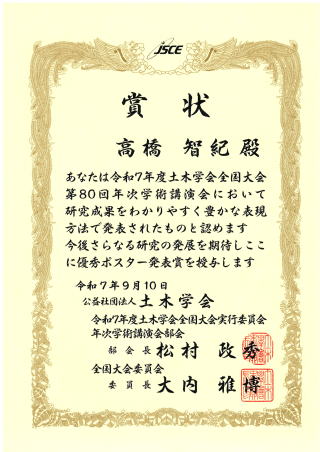 JSCE
賞 状
高橋 智紀 殿
あなたは令和7年度土木学会全国大会
第80回年次学術講演会において
研究成果をわかりやすく豊かな表現
方法で発表されたものと認めます
今後さらなる研究の発展を期待しここ
に優秀ポスター発表賞を授与します
令和7年9月10日
公益社団法人 土木学会
令和7年度土木学会全国大会実行委員会
年次学術講演会部会
部会長 松村 政秀
全国大会委員会
委員長 大内 雅博